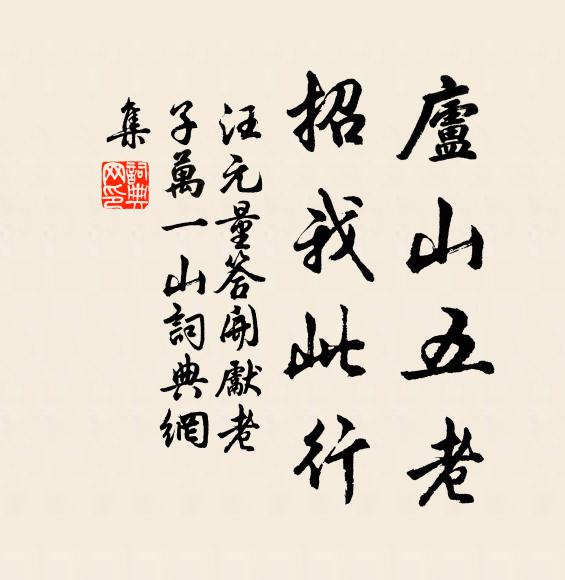 廬山五老
招我此行
汪元量答開獻老
子萬一山詞典網
集
詞典
网印